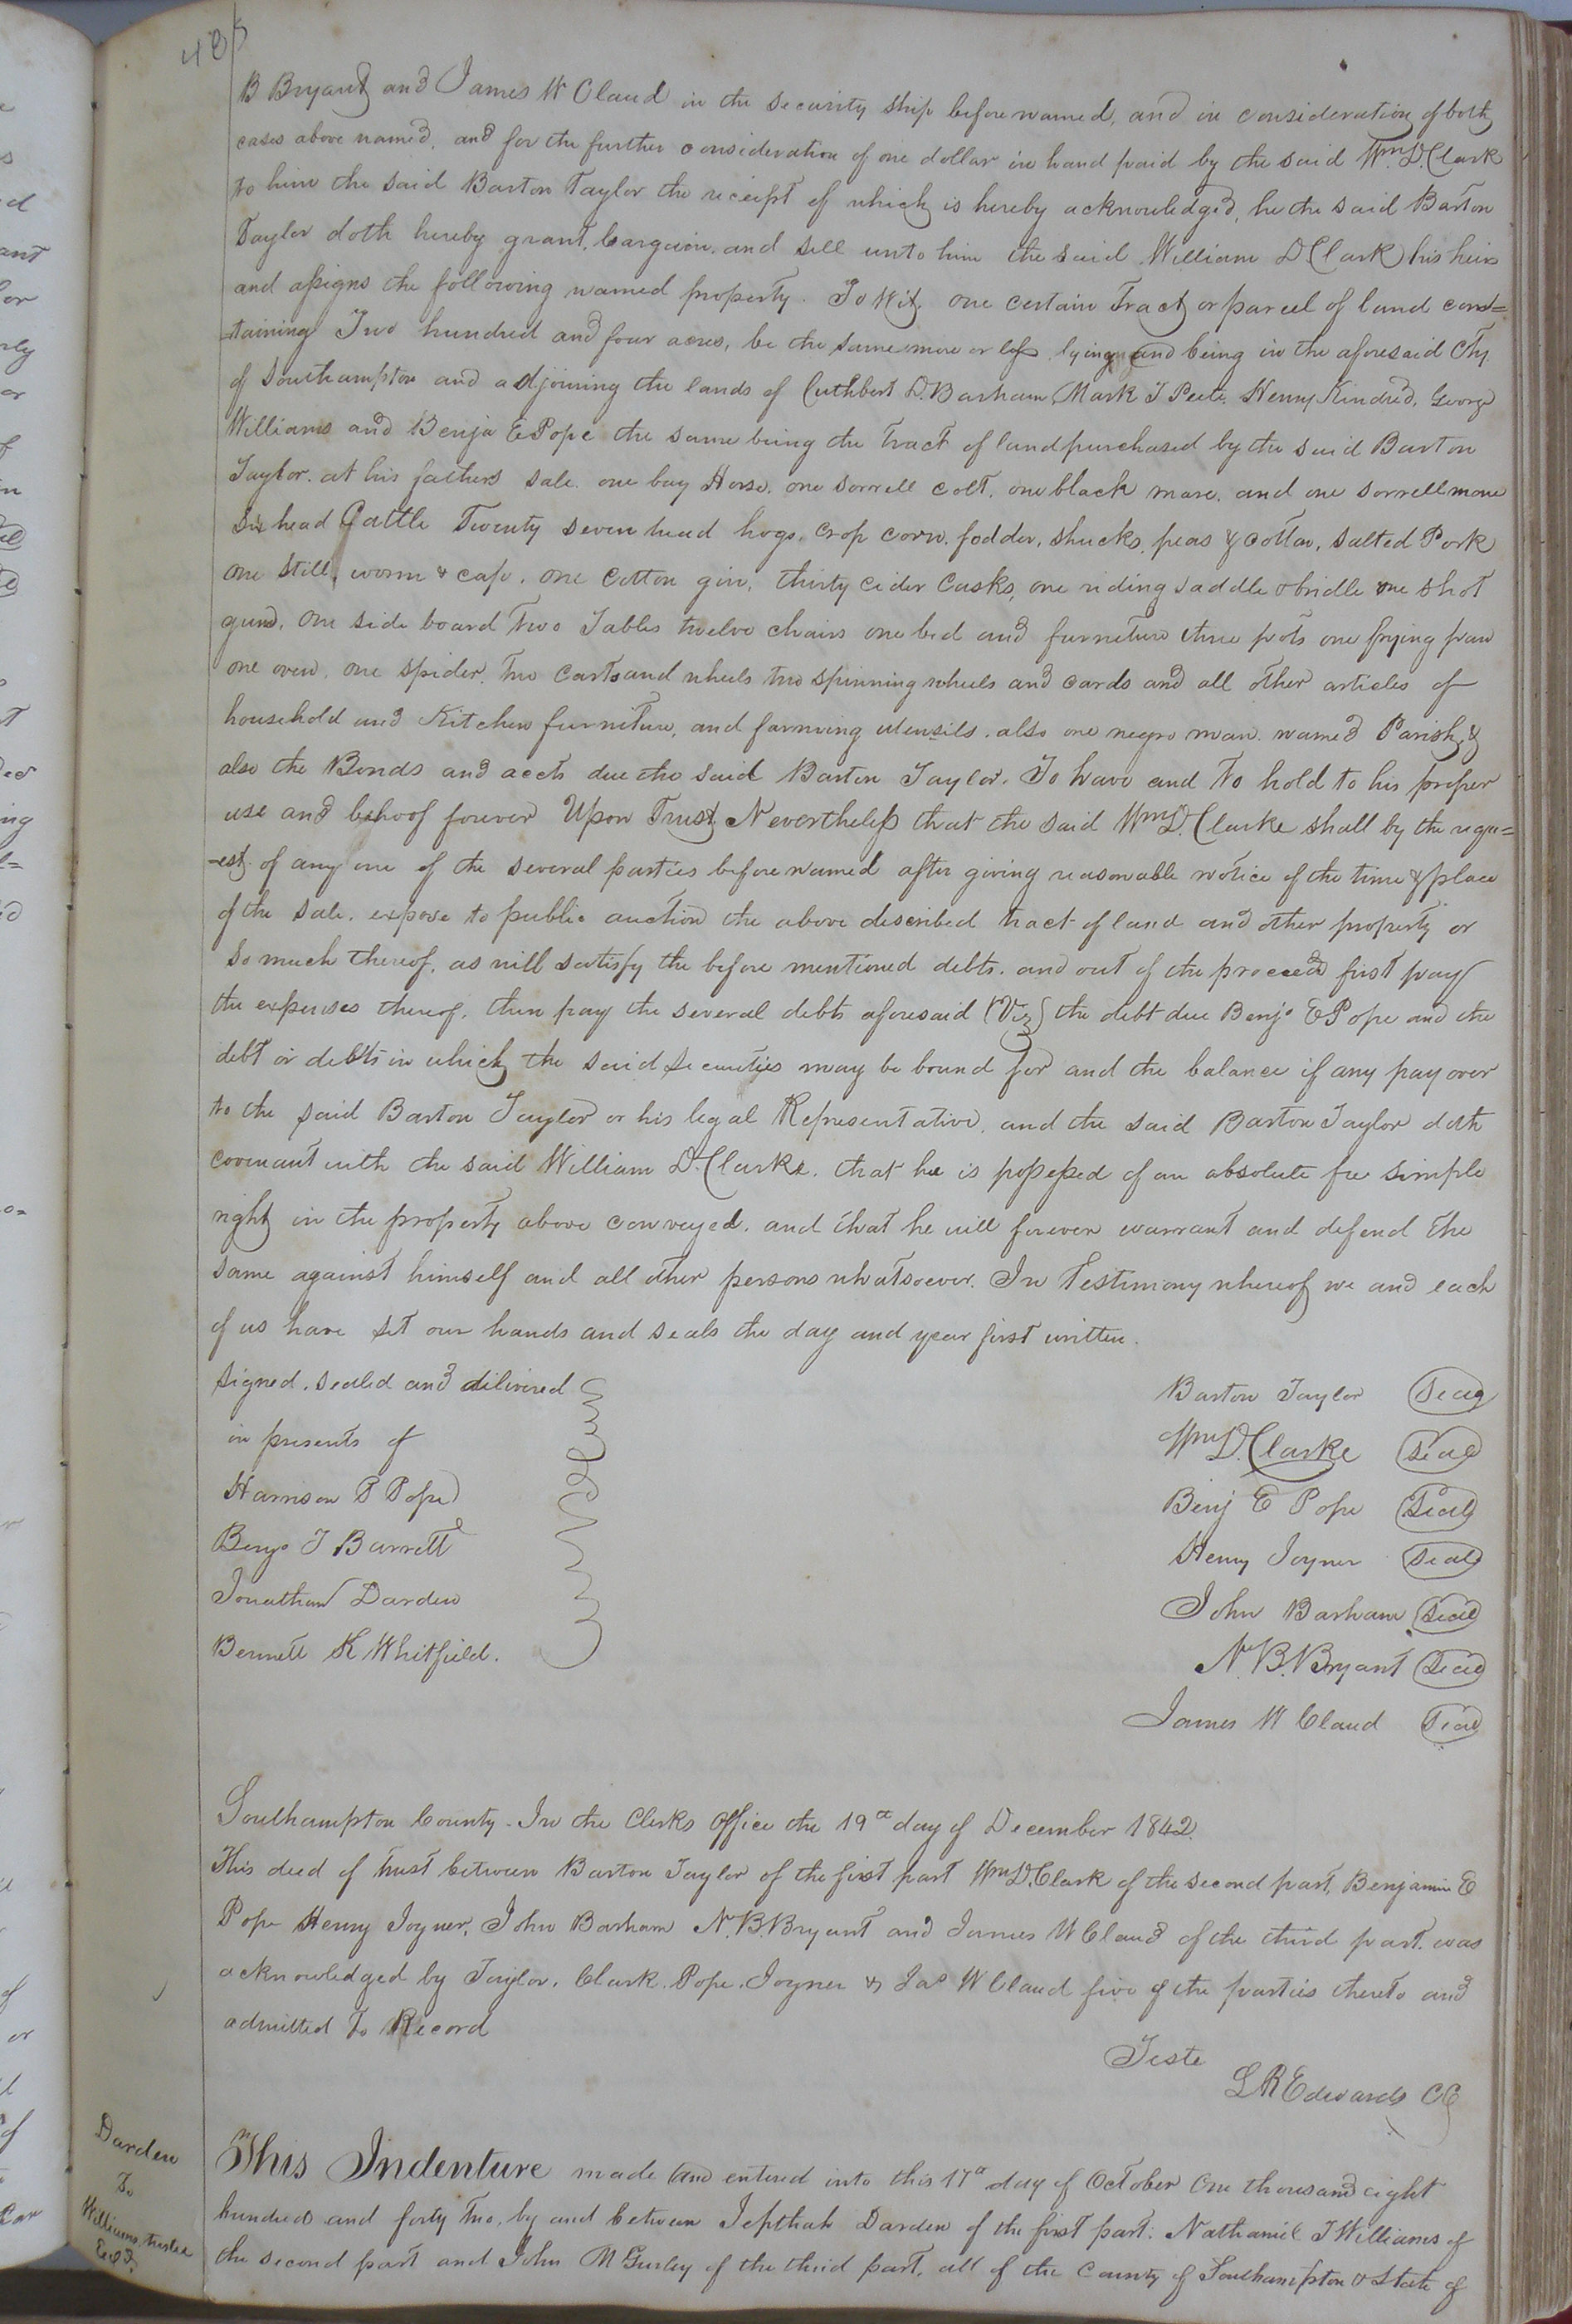 B Bryant and James W Claud in the security ship before named, and in consideration of both
cases above named, and for the further consideration of one dollar in hand paid by the said Wm D. Clark
to him the said Barton Taylor the receipt of which is hereby acknowledged, he the said Barton
Taylor doth hereby grant, bargain, and sell unto him the said William D Clark his heirs
and assigns the following named property. To Wit, one certain Tract or parcel of land con=
taining Two hundred and four acres, be the same more or less lying and being in the aforesaid Cty
of Southampton and adjoining the lands of Cuthbert D. Barham, Mark T Peete, Henry Kindred, George
Williams and Benja E Pope the same being the Tract of land purchased by the said Barton
Taylor at his fathers sale. one bay Horse, one sorrell colt, one black mare, and one sorrell mare
Six head Cattle Twenty seven head hogs, crop corn, fodder, shucks, peas & cotton, salted Pork
one still, worm & cap, one Cotton gin, thirty cider Casks, one riding saddle & bridle one shot
gun, one side board Two Tables twelve chairs one bed and furniture three pots one frying pan
one oven, one spider, two carts and wheels two spinning wheels and cards and all other articles of
household and Kitchen furniture, and farming utensils, also one negro man named Parish, &
also the Bonds and accts due the said Barton Taylor. To have and to hold to his proper
use and behoof forever Upon Trust Nevertheless that the said Wm D. Clarke shall by the requ=
-est of any one of the several parties before named after giving reasonable notice of the time & place
of the sale, expose to public auction the above described tract of land and other property or
so much thereof, as will satisfy the before mentioned debts, and out of the proceeds first pay
the expenses thereof, then pay the several debts aforesaid (Viz) the debt due Benja E Pope and the
debt or debts in which the said Securities may be bound for and the balance if any pay over
to the said Barton Taylor or his legal Representative, and the said Barton Taylor doth
covenant with the said William D. Clarke, that he is possessed of an absolute fee simple
right in the property above conveyed, and that he will forever warrant and defend the
same against himself and all other persons whatsoever. In Testimony whereof we and each
of us have set our hands and seals the day and year first written.
Signed, sealed and delivered
in presents of
Harrison P Pope
Benja T Barrett
Jonathan Darden
Bennett K Whitfield.
Barton Taylor Seal
Wm D. Clarke Seal
Benj E Pope Seal
Henry Joyner Seal
John Barham Seal
N. B. Bryant Seal
James W Claud Seal
Southampton County - In the Clerks Office the 19th day of December 1842.
This deed of trust between Barton Taylor of the first part Wm D. Clark of the second part, Benjamin E
Pope Henry Joyner, John Barham N. B. Bryant and James W Claud of the third part, was
acknowledged by Taylor, Clark, Pope, Joyner & Jas W Claud five of the parties thereto and
admitted to Record
Teste
L R Edwards CC
Darden
To
Williams, trustee
This Indenture made and entered into this 17th day of October One thousand eight
hundred and forty two, by and between Jepthah Darden of the first part. Nathaniel T Williams of
the second part and John M Gurley of the third part, all of the County of Southampton & State of